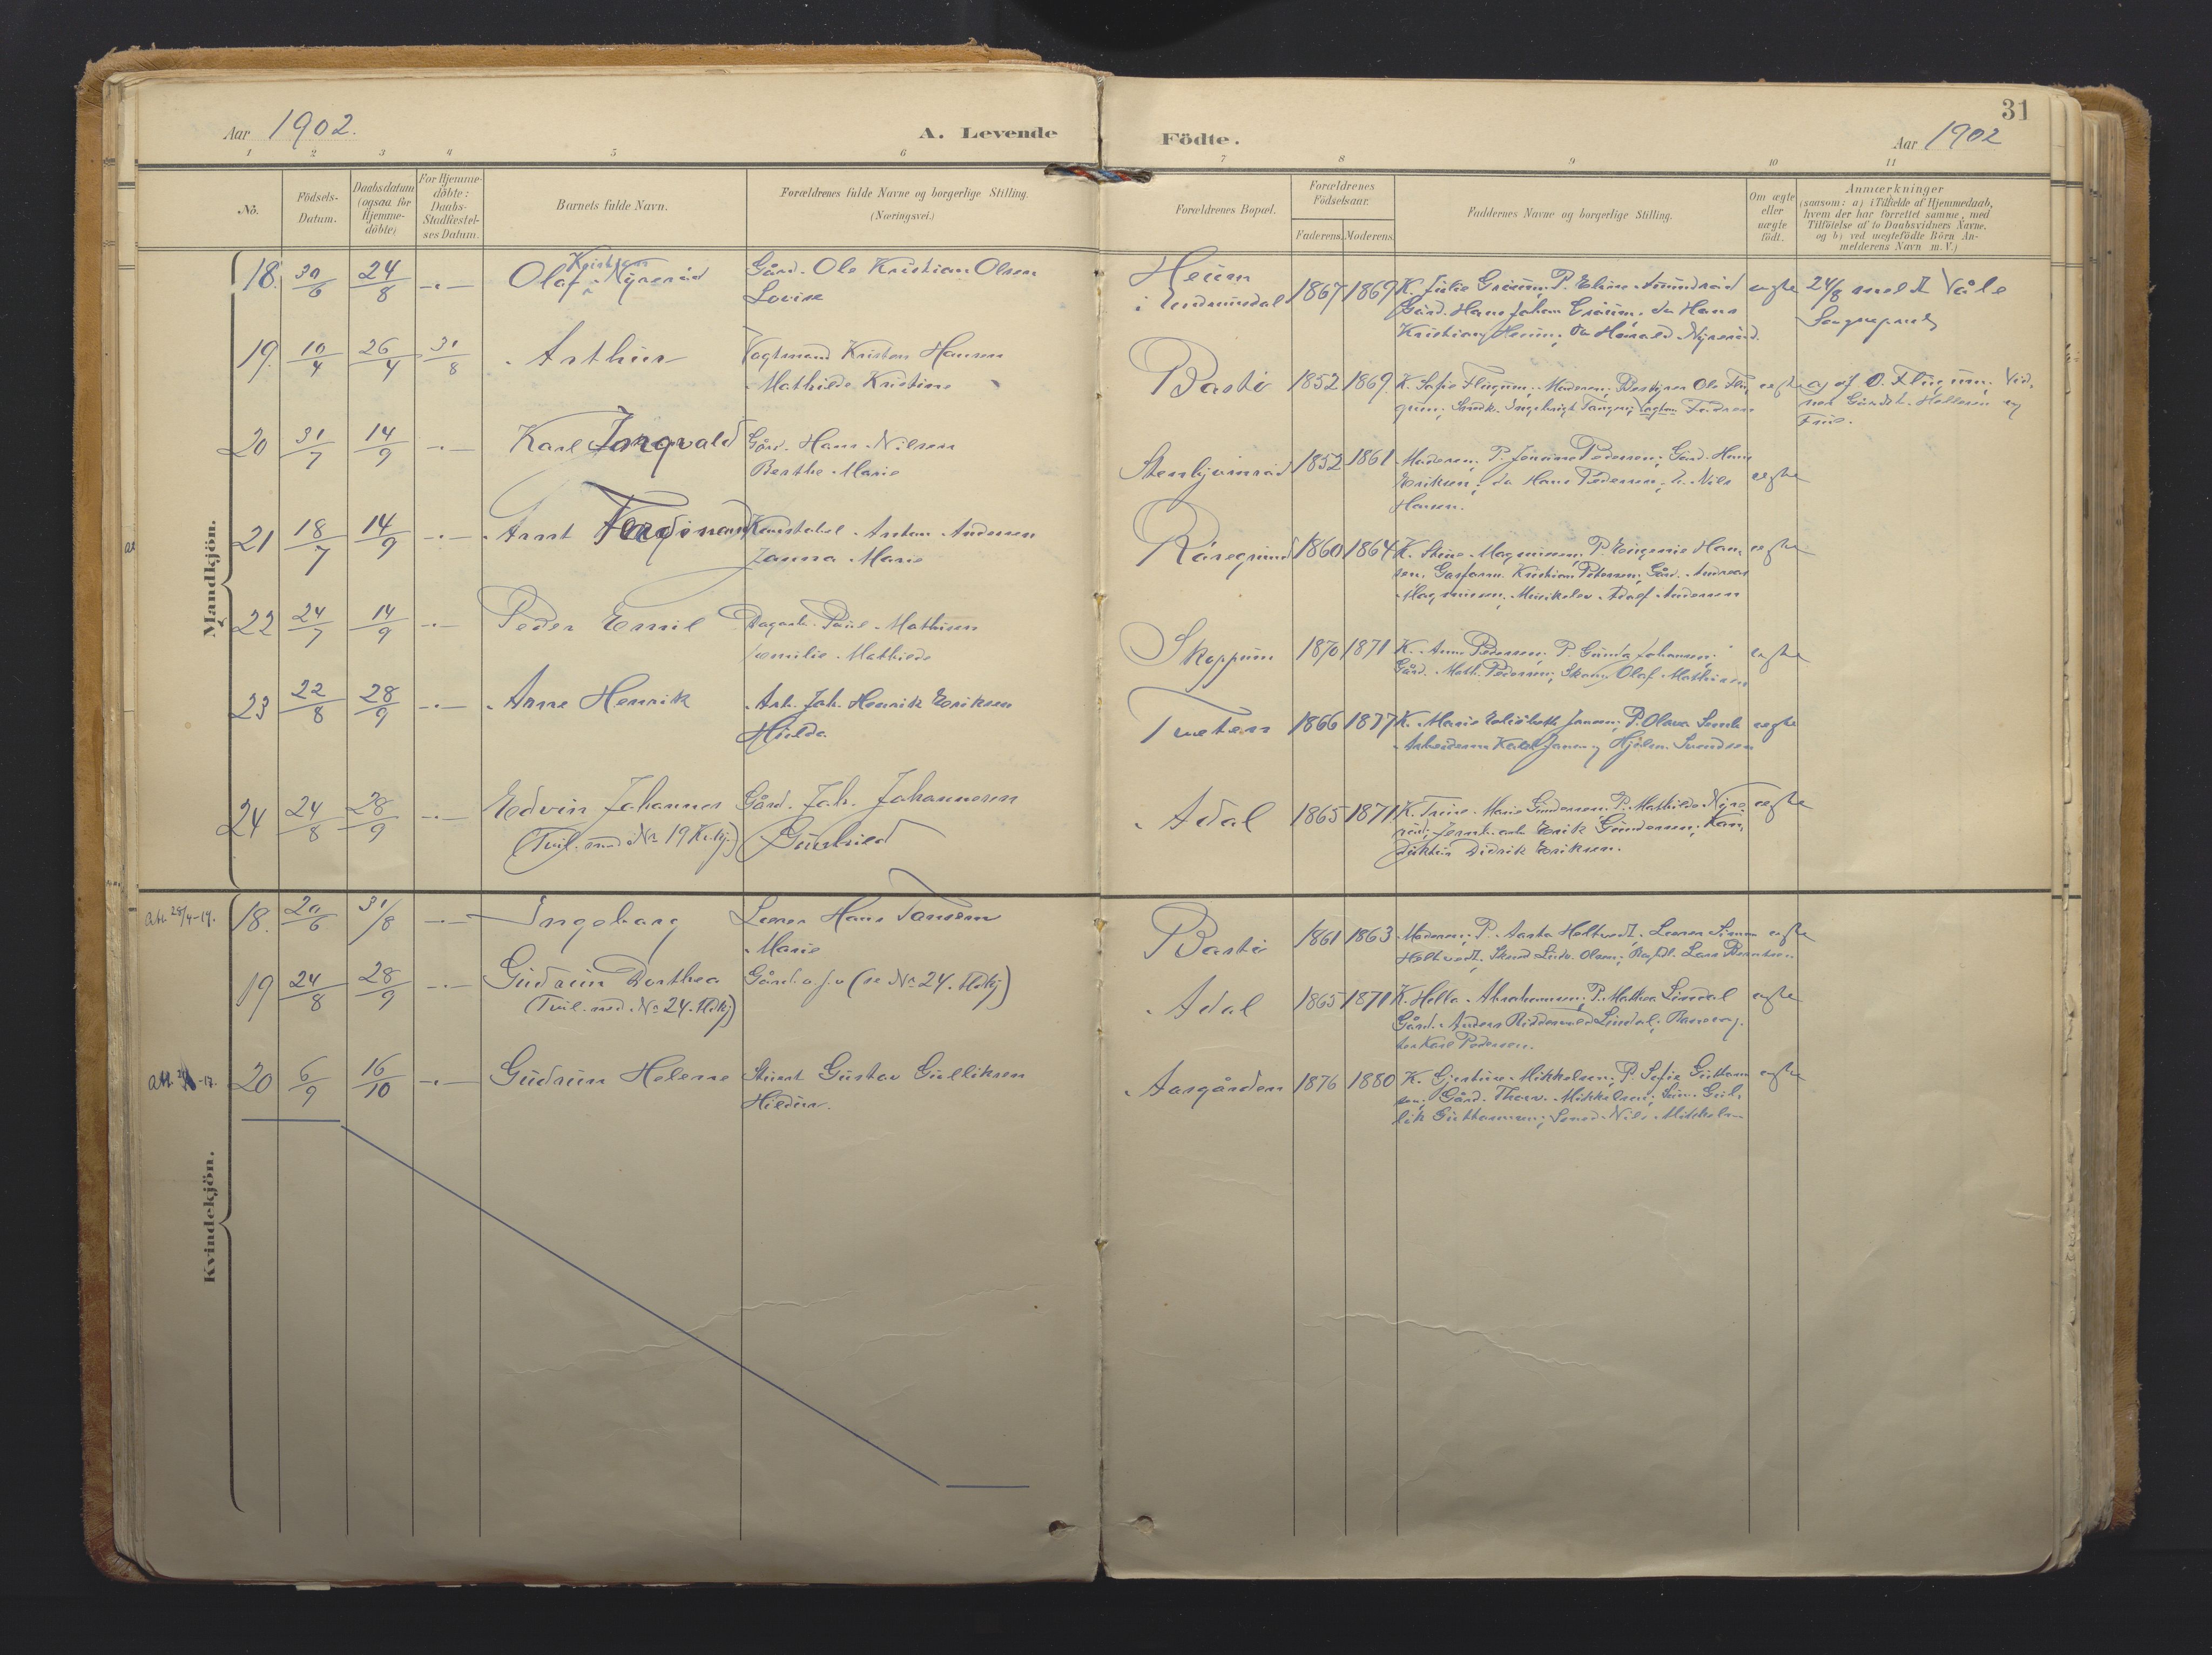 31
Aar 1902.
A. Levende
Födte.
Aar 1902
1 2 3 4 5 6 7 8 9 10 11
No.
Födsels-
Datum.
Daabsdatum
(ogsaa for
Hjemme-
döbte)
For Hjemme-
döbte:
Daabs-
Stadfæstel-
ses Datum.
Barnets fulde Navn.
Forældrenes fulde Navne og borgerlige Stilling.
(Næringsvei.)
Forældrenes Bopæl.
Forældrenes
Födselsaar.
Faderens. Moderens.
Faddernes Navne og borgerlige Stilling.
Om ægte
eller
uægte
födt.
Anmærkninger
(saasom: a) i Tilfælde af Hjemmedaab,
hvem der har forrettet samme, med
Tilföielse af to Daabsvidners Navne,
og b) ved uægtefödte Börn An-
melderens Navn m. V.)
Mandkjön.
18. 30/6 24/8 -.-
Kristian
Olaf Nyreröd
Gård. Ole Kristian Olsen
Lovise
Heum
i Undrumsdal
1867 1869
K. Julie Grøum; P. Eline Amundrød
Gård. Hans Johan Grøum, do Hans
Kristian Heum; do Harald Nyrerød.
ægte
24/8 meldt Våle
Sogneprest
19. 10/4 26/4 31/8
Arthur
Vagtmand Kristen Hansen
Mathilde Kristine
Bastö
1852 1869.
K. Sofie Flugum; Moderen; Bestyrer Ole Flu-
gum; Snedk. Ingebrigt Tangen; Vagtm. Faderen
ægte
a) af O. Flugum; Vid-
ner Hellesen og
Frue.
20 31/7 14/9 -.-
Karl Ingvald
Gård. Hans Nilsen
Berthe Marie
Stenbjönröd
1852 1861
Moderen; P. Jensine Pedersen; Gård. Hans
Eriksen; do Hans Pedersen; U. Nils
Hansen.
ægte
21 18/7 14/9 -.-
Arnt Ferdinand
Konstabel Anton Andersen
Janna Marie
Röregrund
1860 1864
K. Stine Magnussen; P. Eugenie Han-
sen. Gasform. Kristian Petersen; Gård. Andreas
Magnussen; Musikelev Adolf Andersen
ægte
22 24/7 14/9 -.-
Peder Emil
Bagark. Paul Mathisen
Emilie Mathilde
Skoppum
1870 1871
K. Anne Pedersen; P. Gunda Johansen;
Gård. Math. Pedersen; Skom. Olaf Mathisen
ægte
23 22/8 28/9 -.-
Arne Henrik
Arb. Joh. Henrik Eriksen
Hilda
Tveten
1866 1877
K. Marie Elisabeth Jansen; P. Olava
Arbeiderne Karl Jansen og Hjalm. Svendsen
ægte
24 24/8 28/9 -.-
Edvin Johannes
(Tvil. med No 19 Kvkj.)
Gård. Joh. Johannesen
Gunhild
Adal
1865 1871
K. Trine Marie Gundersen; P. Mathilde Nyre-
röd; Jernb. arb. Erik Gundersen; Kon-
duktör Didrik Eriksen.
ægte
Kvindekjön.
Att. 28/4-19.
18. 20/6 31/8 -.-
Ingeborg
Lærer Hans Tønsem
Marie
Bastö
1861 1863
Moderen; P. Aasta Holtvedt, Lærer Simon
Holtvedt, Ludv. Olsen; Lars Berntsen.
ægte
19 24/8 28/9 -.-
Gudrun Dorthea
(Tvil. med No 24. Mdkj)
Gård. o. s. v. (se No 24. Mdkj)
Adal
1865 1871
K. Hella Abrahamsen; P. Mathea Lindal
Gård. Anders Riddervold Lindal;
Karl Pedersen.
ægte
Att. -17.
20 6/9 16/10 -.-
Gudrun Helene
Stuert Gustav Gulliksen
Hildur.
Aasgården
1876 1880
K. Gjertine Mikkelsen; P. Sofie Guttorm-
sen; Gård. Thorv. Mikkelsen; Söm. Gul-
lik Guttormsen; Nils Mikkelsen
ægte